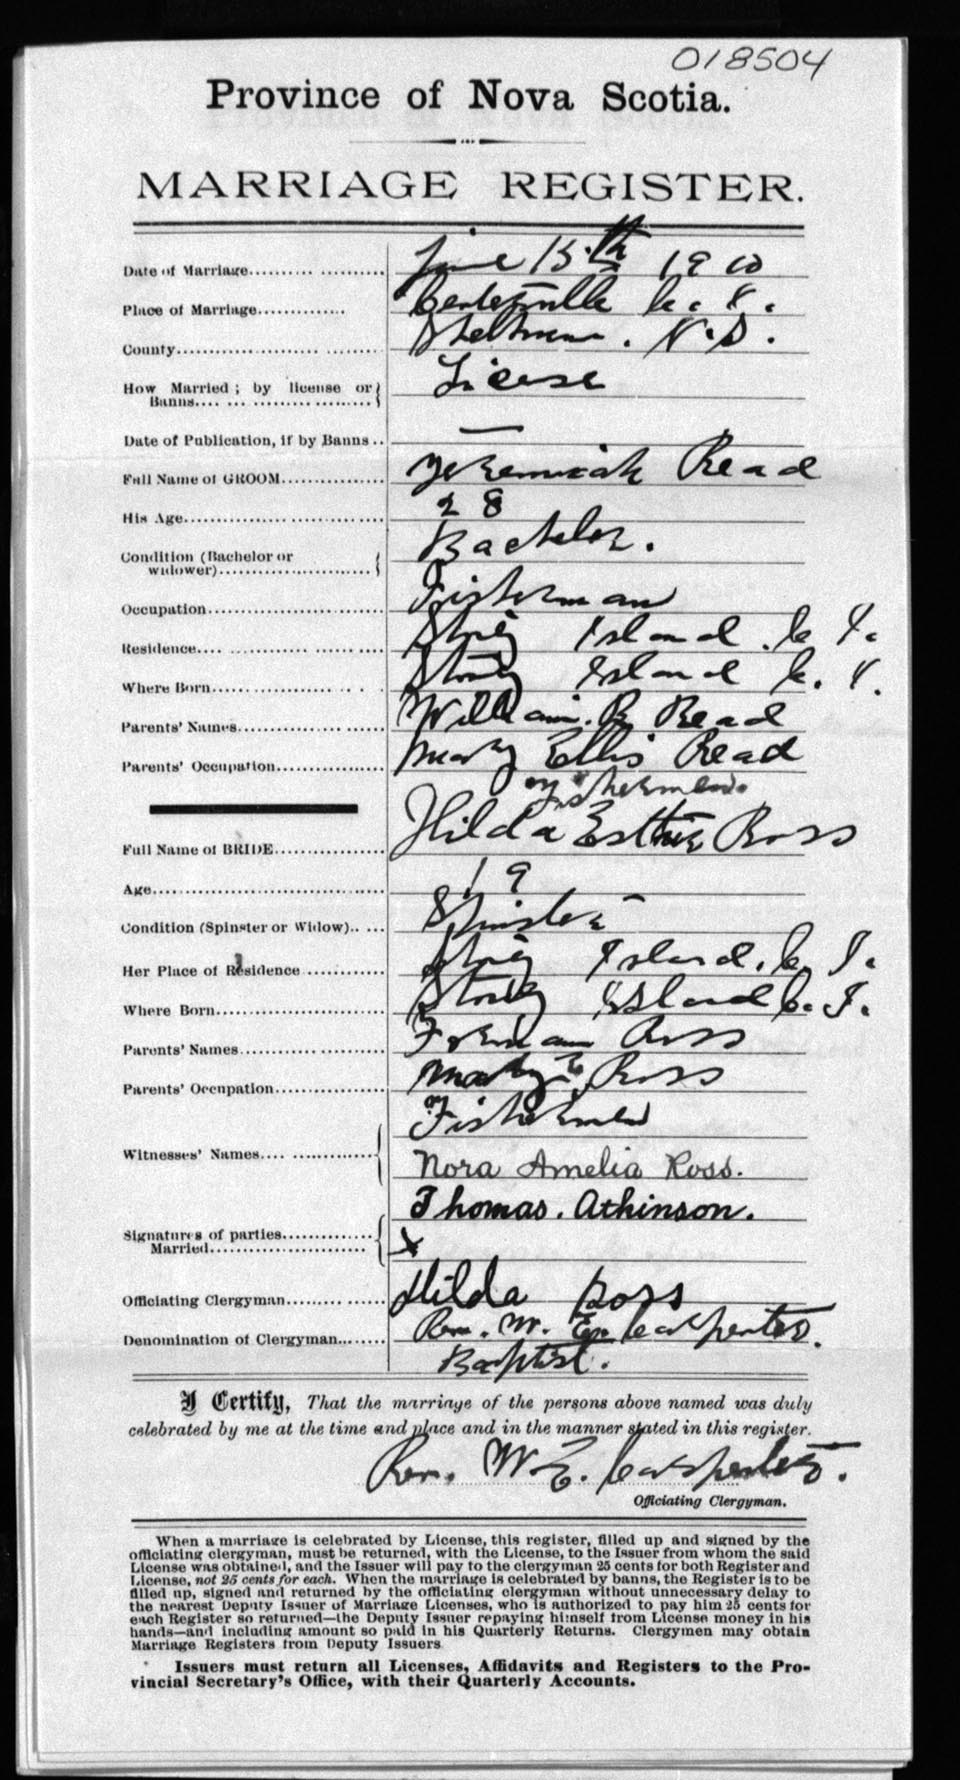 018504
Province of Nova Scotia.
MARRIAGE REGISTER.
Date of Marriage.......... June 15th 1910
Place of Marriage.......... C. I.
County.......... N.S.
How Married; by license or
Banns.......... License
Date of Publication, if by Banns.. —
Full Name of GROOM.......... Jeremiah Read
His Age.......... 28
Condition (Bachelor or
widower).......... Bachelor.
Occupation.......... Fisherman
Residence.......... Stony Island. C. I.
Where Born.......... Stony Island C. I.
Parents' Names.......... William. B. Read
Parents' Occupation.......... Mary Ellis Read
Fishermen.
Full Name of BRIDE.......... Hilda Esther Ross
Age.......... 19
Condition (Spinster or Widow)..... Spinster
Her Place of Residence.......... Stony Island. C. I.
Where Born.......... Stony Island C. I.
Parents' Names.......... Freeman Ross
Parents' Occupation.......... Mary E. Ross
Fishermen
Witnesses' Names.......... Nora Amelia Ross.
Thomas. Atkinson.
Signatures of parties
Married.......... X
Hilda Ross
Officiating Clergyman.......... Rev. W. E. Carpenter.
Denomination of Clergyman.......... Baptist.
I Certify, That the marriage of the persons above named was duly
celebrated by me at the time and place and in the manner stated in this register.
Rev. W. E. Carpenter.
Officiating Clergyman.
When a marriage is celebrated by License, this register, filled up and signed by the
officiating clergyman, must be returned, with the License, to the Issuer from whom the said
License was obtained, and the Issuer will pay to the clergyman 25 cents for both Register and
License, not 25 cents for each. When the marriage is celebrated by banns, the Register is to be
filled up, signed and returned by the officiating clergyman without unnecessary delay to
the nearest Deputy Issuer of Marriage Licenses, who is authorized to pay him 25 cents for
each Register so returned—the Deputy Issuer repaying himself from License money in his
hands—and including amount so paid in his Quarterly Returns. Clergymen may obtain
Marriage Registers from Deputy Issuers
Issuers must return all Licenses, Affidavits and Registers to the Pro-
vincial Secretary's Office, with their Quarterly Accounts.